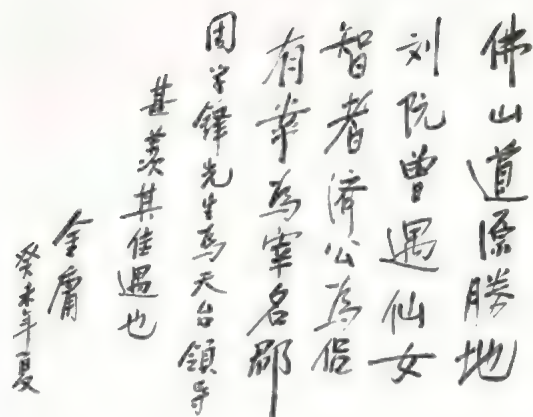 佛山道源勝地
刘阮曾遇仙女
智者濟公為侣
有幸為宰名郡
周学鋒先生為天台領导
甚羡其佳遇也
金庸
癸未年夏